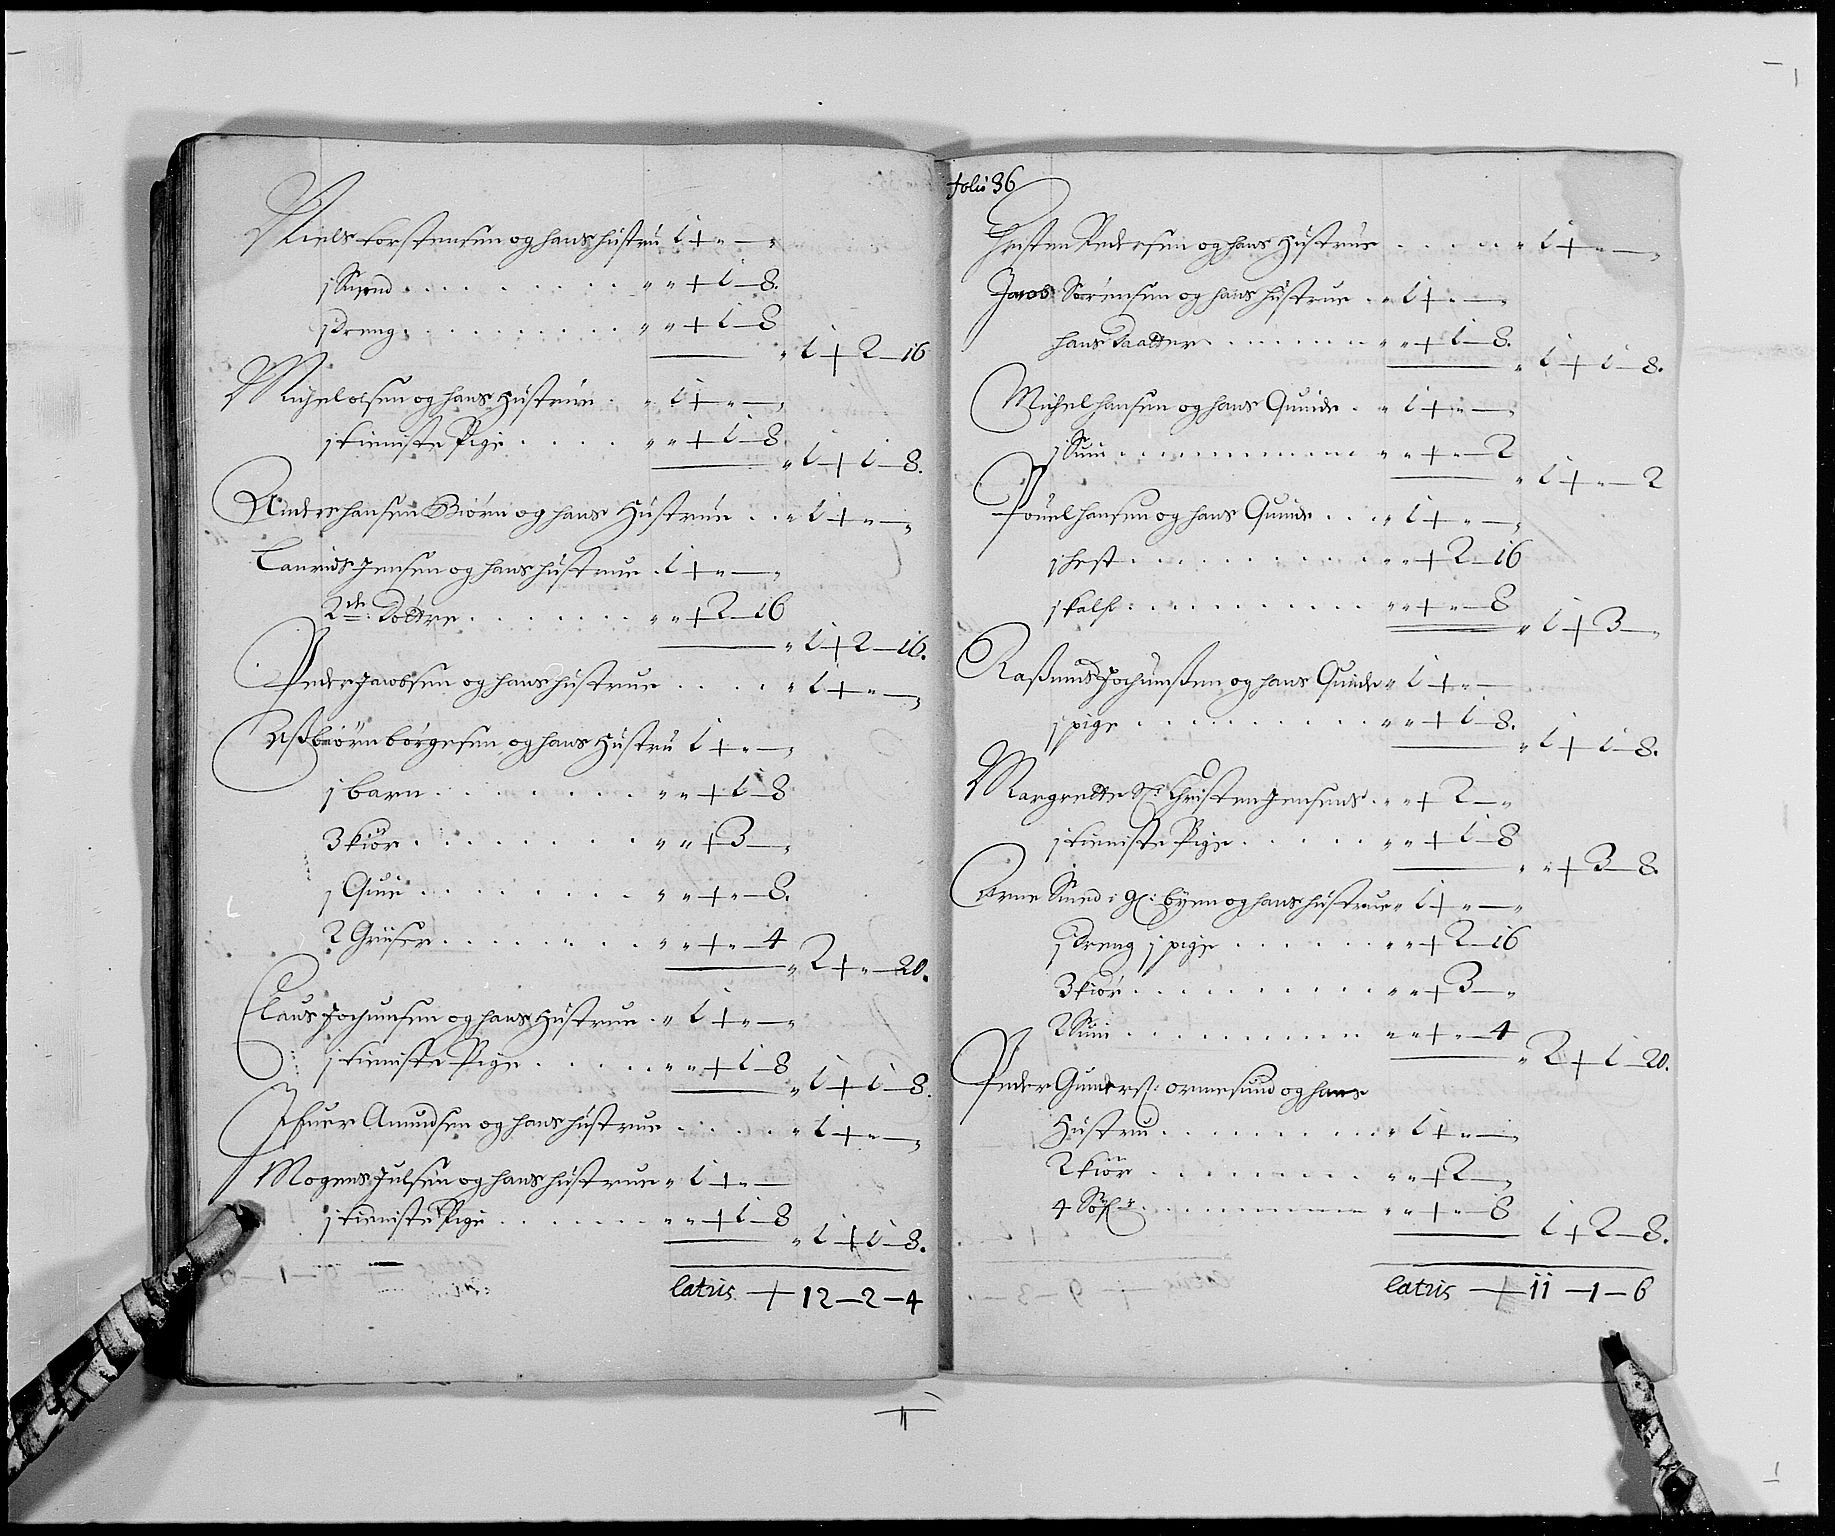 Niels torstensen og hans hustru 1 + " — "
1 Svend . . . . . . " " + 1 — 8.
1 dreng . . . . . . " " + 1 — 8
" 1 + 2 — 16
Michel olsen og hans Hustrue . " 1 + " — "
1 tieniste Pige . . . . " " + 1 — 8
" 1 + 1 — 8.
Anders hansen Biörn og hans Hustrue . . " 1 + " — "
Laurids Jensen og hans hustrue . 1 + " — "
2de: Döttre . . . . . . " " + 2 — 16
" 1 + 2 — 16.
Peder Jacobsen og hans hustrue . . . . " 1 + " — "
Aßbiörn börgesen og hans Hustru 1 + " — "
1 barn . . . . . . " " + 1 — 8
3 kiör . . . . . . " " + 3 — "
1 Quie . . . . . . " " + " — 8.
2 Griiser . . . . . . " " + " — 4
" 2 + " — 20.
Claus Jochumsen og hans Hustrue . " 1 + " — "
1 tieniste Pige . . . . " " + 1 — 8
" 1 + 1 — 8.
Amundsen og hans hustrue . . . . " 1 + " — "
Mogens Julsen og hans hustrue " 1 + " —
1 tieniste Pige . . . . . " " + 1 — 8
" 1 + 1 — 8.
latus + 12 — 2 — 4
folio 36
Christen Pedersen og hans Hustrue . . . . . " 1 + " — "
Jacob Sörensen og hans hustrue . . " 1 + " — "
hans daatter . . . . . . " " + 1 — 8.
" 1 + 1 — 8.
Michel hansen og hans Quinde . " 1 + " — "
1 Suin . . . . . . " " + " — 2
" 1 + " — 2
Pouel hansen og hans Quinde . . . " 1 + " — "
1 hest . . . . . . " " + 2 — 16
1 kalf . . . . . . " " + " — 8
" 1 + 3 — "
Raßmus Jochumßen og hans Quinde " 1 + " —
1 pige . . . . . . " " + 1 — 8.
" 1 + 1 — 8.
Margrette Christen Jensens . " " + 2 — "
1 tieniste Pige . . . . . " " + 1 — 8
" " + 3 — 8.
Arne Smed i gl: byen og hans hustrue " 1 + " — "
1 dreng 1 pige . . . . . " " + 2 — 16
3 kiör . . . . . . " " + 3 — "
2 Suin . . . . . . " " + " — 4
" 2 + 1 — 20.
Peder Gunders: ormesund og hans
Hustru . . . . . . " 1 + " — "
2 kiör . . . . . . " " + 2 — "
4 . . . . . . " " + " — 8
1 + 2 — 8.
latus — + 11 — 1 — 6